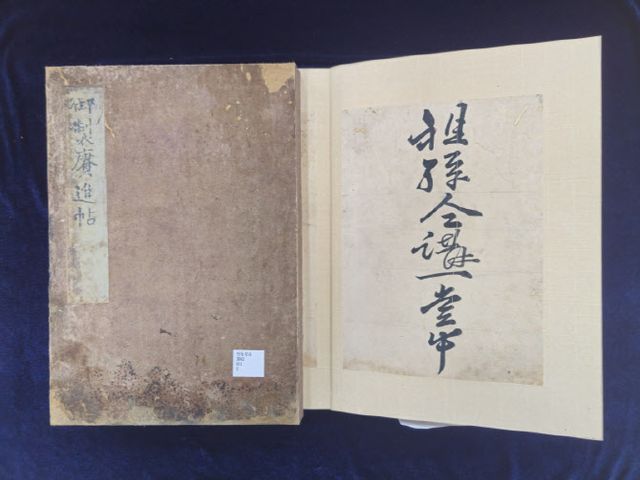 御製賡進帖
祖孫今講一堂中